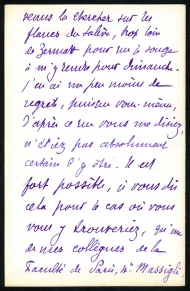 venus la chercher sur les
flancs du Salève, trop loin
de Zermatt pour que je songe
à m'y rendre pour dimanche.
j'en ai un peu moins de
regret, puisque vous-même,
d'après ce que vous me disiez,
n'étiez pas absolument
certain d'y être. Il est
fort possible, je vous dis
cela pour le cas où vous
vous y trouveriez, qu'un
de mes collègues de la
Faculté de Paris, Mr Massigli